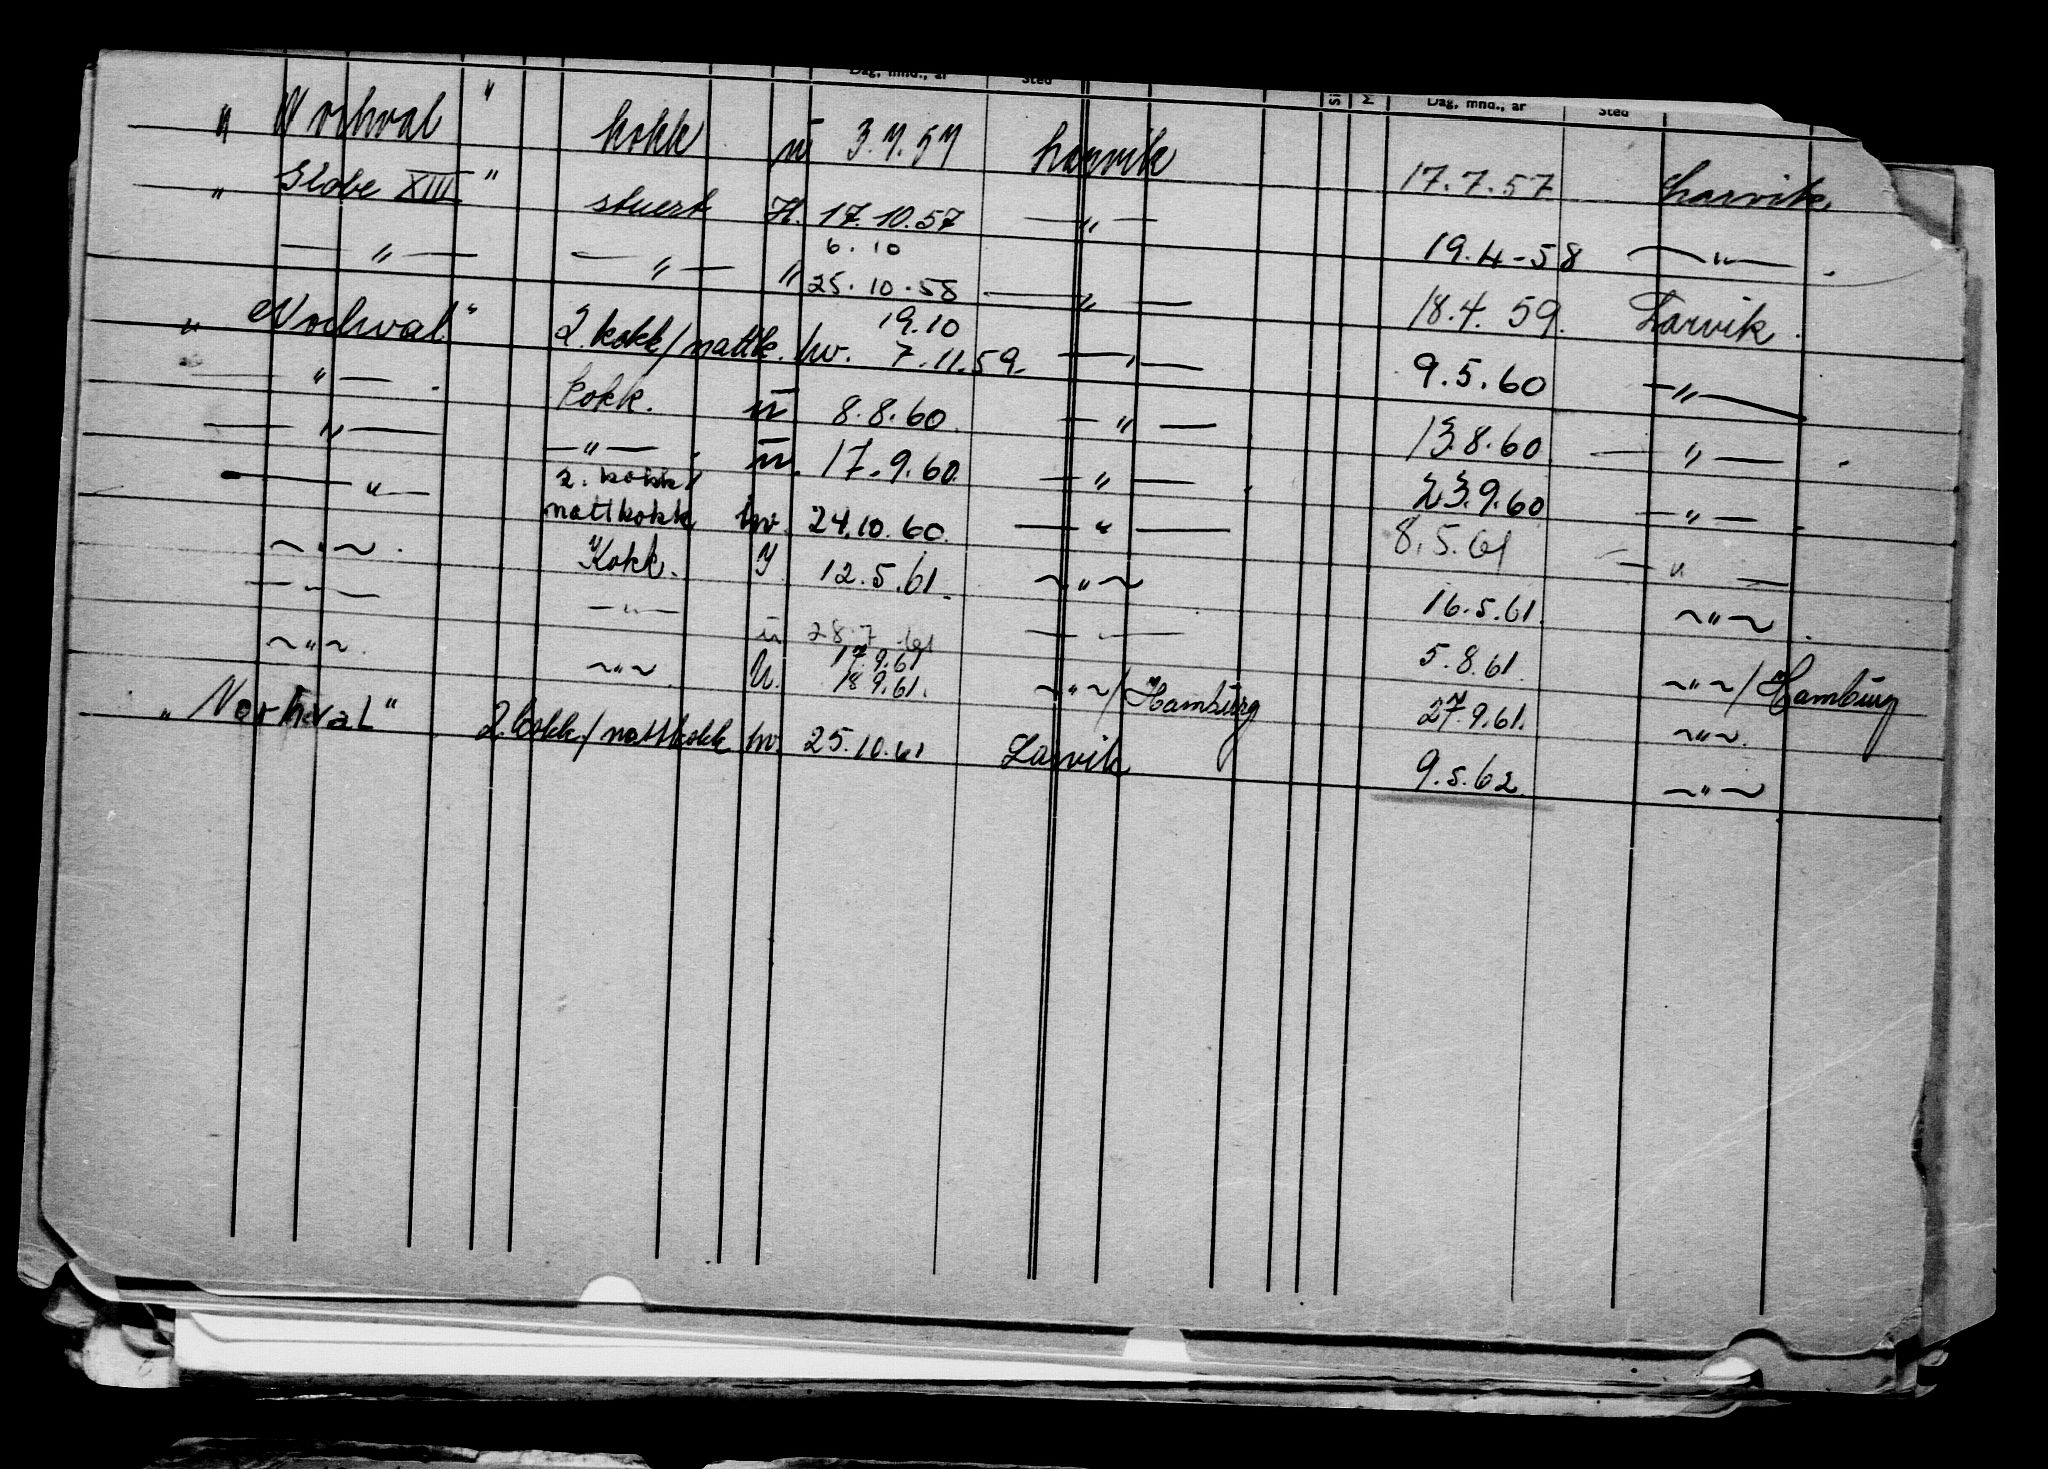 Dag, mnd., år Sted Si M Dag, mnd., år Sted
" Norhval " kokk u 3.7.57 Larvik 17.7.57 Larvik.
" Globe XIII " stuert H. 17.10.57 — " — 19.4-58 — " — .
6.10
— " — — " — " 25.10.58 — " — 18.4.59. Larvik.
19.10
" Norhval " 2. kokk/nattk. hv. 7.11.59. — " — 9.5.60 — " —
— " — . kokk. u 8.8.60. — " — 13.8.60 — " — .
— " — — " — . u. 17.9.60. — " — . 23.9.60 — " — .
— " — 2. kokk/
nattkokk hv. 24.10.60. — " — 8.5.61 — " —
~ " ~ . Kokk. Y 12.5.61. ~ " ~ 16.5.61. ~ " ~ .
— " — — " — u 28.7.61 — " — 5.8.61. ~ " ~ / Hamburg
17.9.61
~ " ~ . ~ " ~ . U. 18.9.61. ~ " ~ / Hamburg 27.9.61. ~ " ~ .
" Norhval " 2. kokk/nattkokk hv. 25.10.61 Larvik 9.5.62. ~ " ~